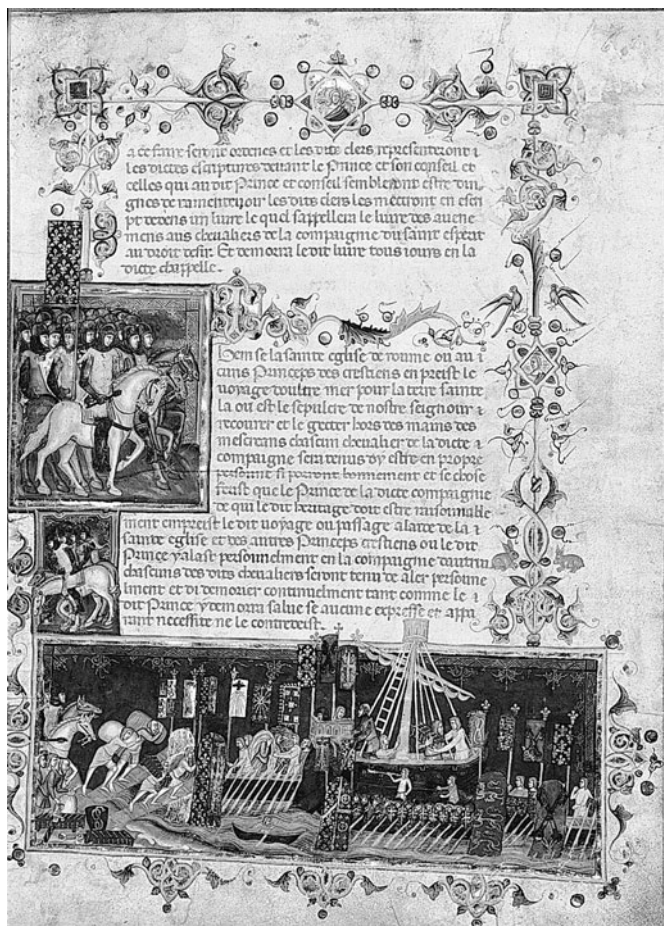 a ce faire seront ordenes et les dits clers representeront i
les dictes escriptures devant le Prince et son conseil et
celles qui au dit Prince et conseil sembleront estre din
gnes de ramentevoir les dits clers les mectront en escri
pt dedens un livre le quel sappellera le livre des avene
mens aus chevaliers de la compaignie du saint esperit
au droit desir. Et demorra le dit livre tous iours en la
dicte chappelle.
Item se la sainte eglise de roume ou au i
cuns Princeps des crestiens enpreist le
voyage doultre mer pour la terre sainte
la ou est le sepulcre de nostre seignour i
recouvrer et le gecter hors des mains des
mescreans chascun chevalier de la dicte i
compaignie sera tenus dy estre en propre
personne si porront bonnement et se chose
feust que le Prince de la dicte compaignie
de qui le dit heritage doit estre raisonnable
ment empreist le dit voyage ou passage a laide de la i
sainte eglise et des autres Princeps crestiens ou le dit
Prince y alast personnelment en la compaignie dautrui
chascuns des dits chevaliers seront tenu de aler personne
lment et di demorer continuelment tant comme le i
dit Prince y demorra salve se aucune expresse et appa
rant necessite ne le contredist.